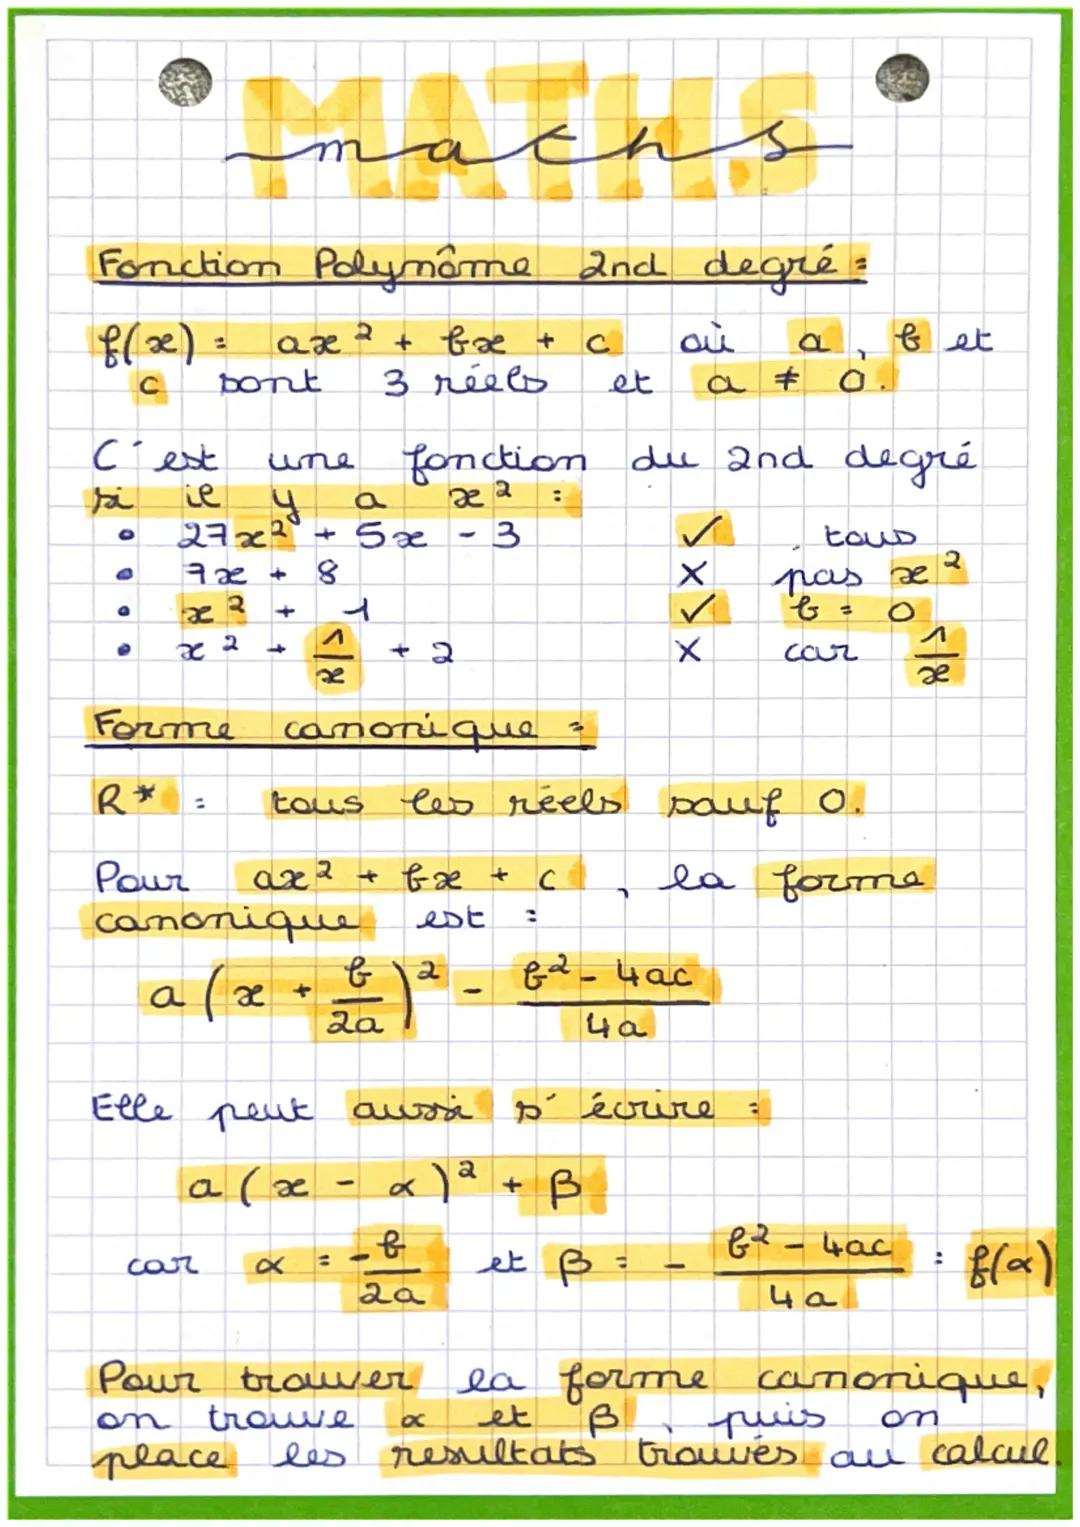 MATHS
maths
Fonction Polynôme 2nd degré :
f(x) = ax² + bx + c où a, b et
c sont 3 réels et a ≠ 0.
C'est une fonction du 2nd degré
si il y a x² :
• 27x² + 5x - 3 ✓ , tous
• 7x + 8 X pas x²
• x² + 1 ✓ b = 0
• x² + 1/x + 2 X car 1/x
Forme canonique :
R* : tous les réels sauf 0.
Pour ax² + bx + c , la forme
canonique est :
a (x + b/2a)² - b² - 4ac/4a
Elle peut aussi s'écrire :
a (x - α)² + β
car α = -b/2a et β = - b² - 4ac/4a = f(α)
Pour trouver la forme canonique,
on trouve α et β , puis on
place les resultats trouvés au calcul.